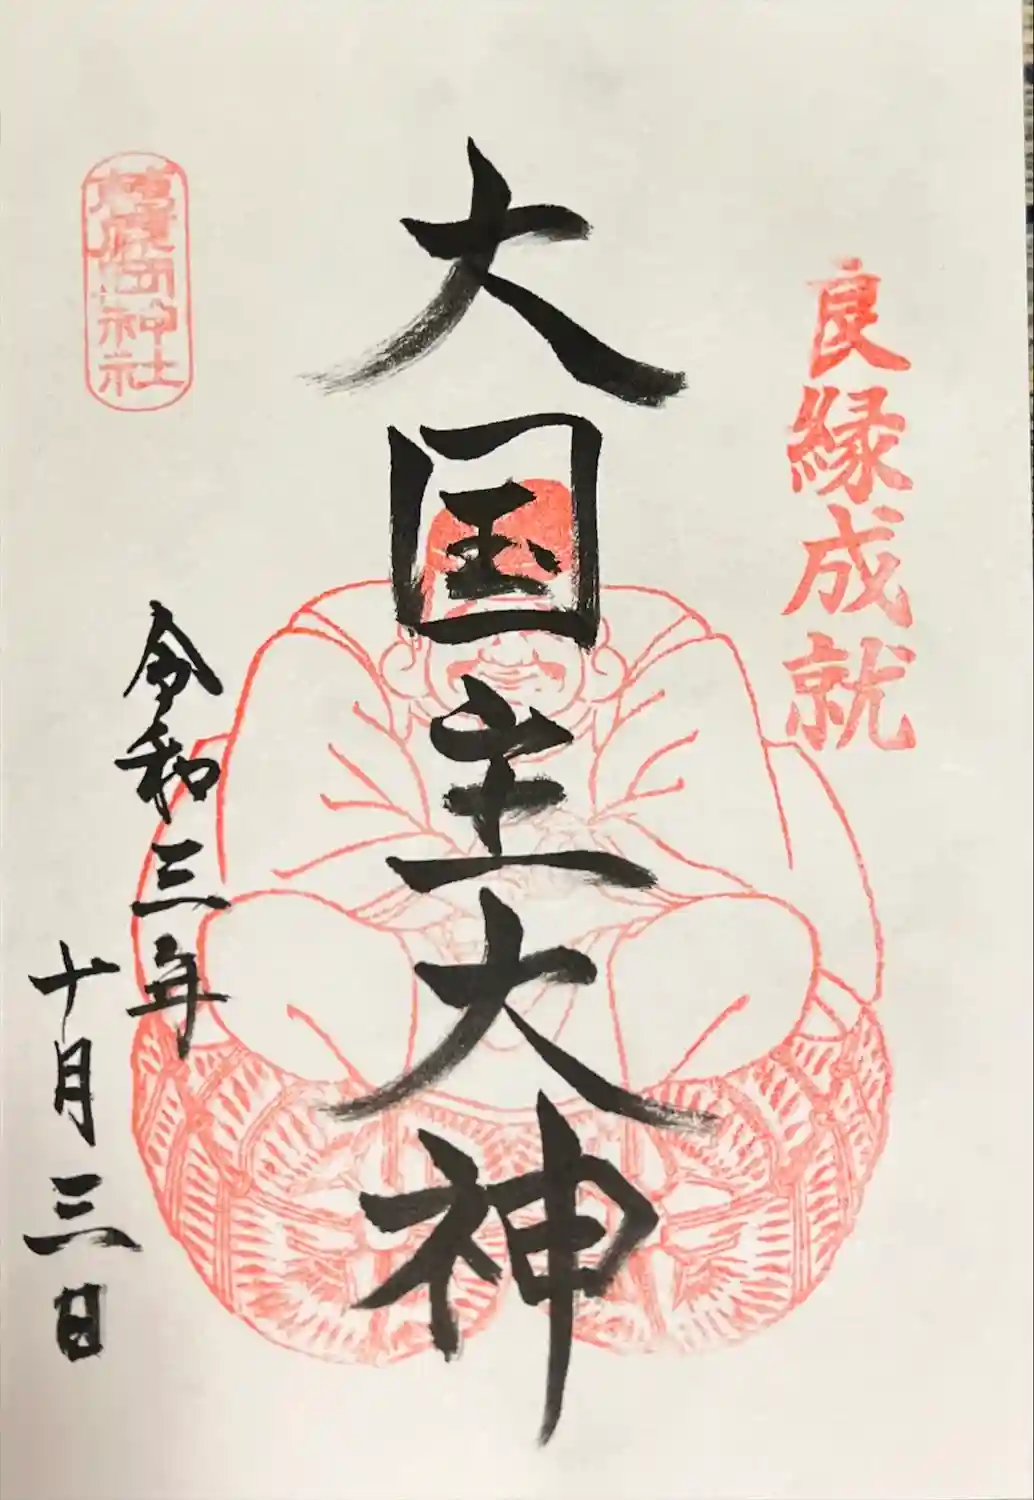 良縁成就
大国主大神
令和三年
十月三日
神社